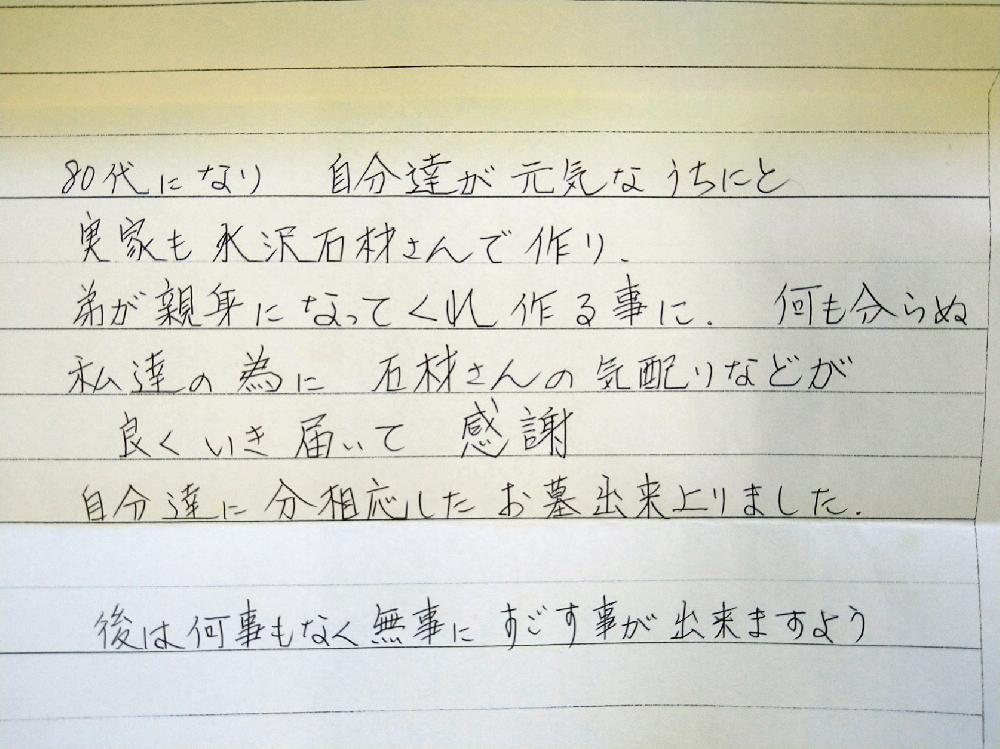 80代になり 自分達が元気なうちにと
実家も水沢石材さんで作り.
弟が親身になってくれ作る事に. 何も分らぬ
私達の為に 石材さんの気配りなどが
良くいき届いて 感謝
自分達に分相応したお墓出来上りました.
後は何事もなく無事にすごす事が出来ますよう